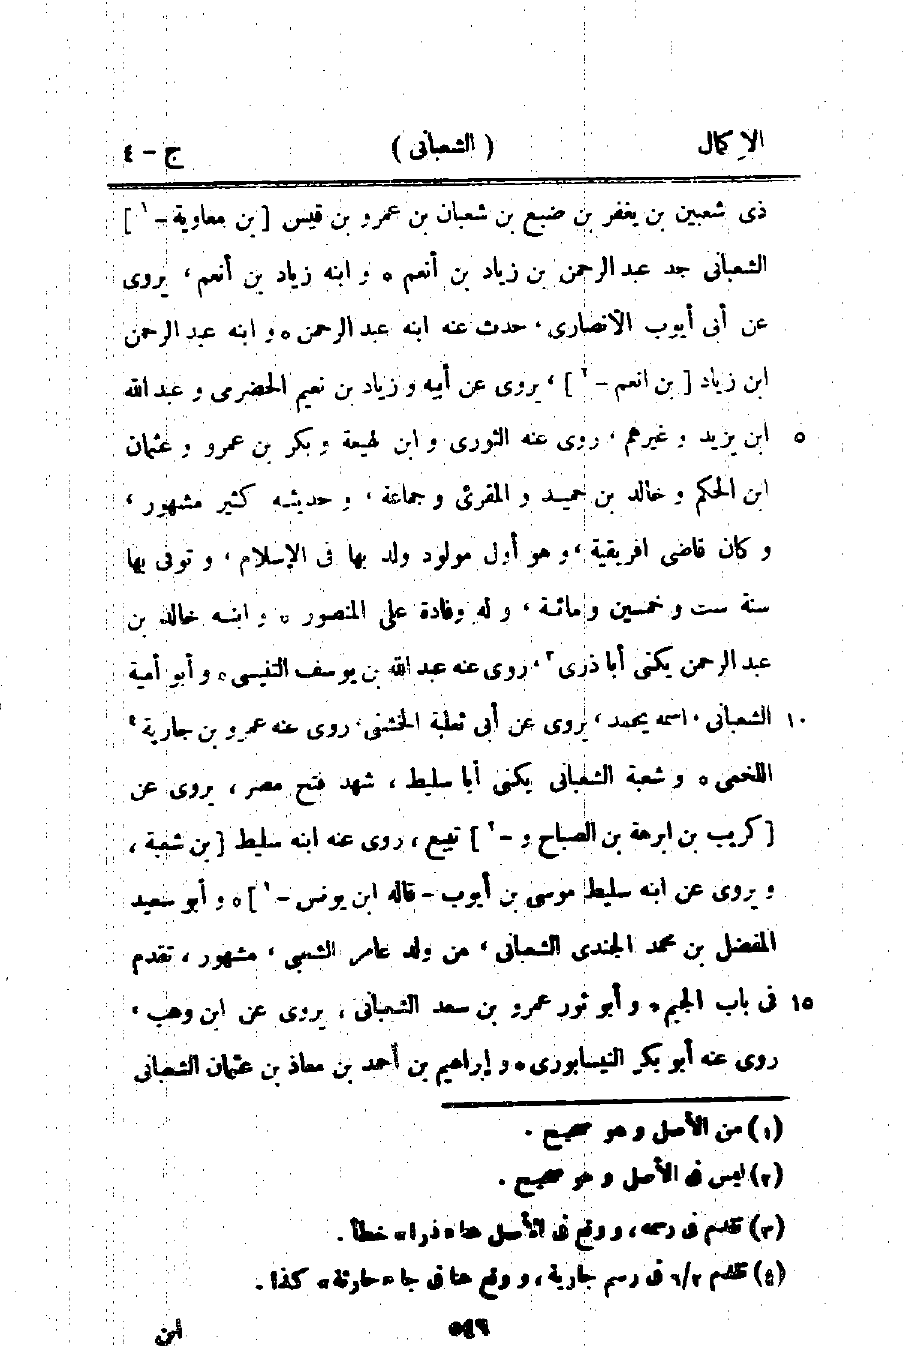 الإكمال ( الشعبانى ) ج - ٤
ذى شعبين بن يغفر بن ضبع بن شعبان بن عمرو بن قيس [ بن معاوية - ١ ]
الشعبانى جد عبد الرحمن بن زياد بن أنعم ه و ابنه زياد بن أنعم ، يروى
عن أبى أيوب الأنصارى ، حدث عنه ابنه عبد الرحمن ه و ابنه عبد الرحمن
ابن زياد [ بن انعم - ٢ ] ، يروى عن أبيه و زياد بن نعيم الحضرمى و عبد الله
ابن يزيد و غيرهم ، روى عنه الثورى و ابن لهيعة و بكر بن عمرو و عثمان ٥
ابن الحكم و خالد بن حميد و المقرئ و جماعة ، و حديثه كثير مشهور ،
و كان قاضى افريقية ، و هو أول مولود ولد بها فى الإسلام ، و توفى بها
سنة ست و خمسين و مائة ، و له وفادة على المنصور ه و ابنه خالد بن
عبد الرحمن يكنى أبا ذرى ٣ ، روى عنه عبد الله بن يوسف التنيسى ه و أبو أمية
الشعبانى ، اسمه يحمد ، يروى عن أبى ثعلبة الخشنى ، روى عنه عمرو بن جارية ٤ ١٠
اللخمى ه و شعبة الشعبانى يكنى أبا سليط ، شهد فتح مصر ، يروى عن
[ كريب بن ابرهة بن الصباح و - ٢ ] تبيع ، روى عنه ابنه سليط [ بن شعبة ،
و يروى عن ابنه سليط موسى بن أيوب - قاله ابن يونس - ١ ] ه و أبو سعيد
المفضل بن محمد الجندى الشعبانى ، من ولد عامر الشعبى ، مشهور ، تقدم
فى باب الجيم ه و أبو ثور عمرو بن سعد الشعبانى ، يروى عن ابن وهب ، ١٥
روى عنه أبو بكر النيسابورى ه و إبراهيم بن أحمد بن معاذ بن عثمان الشعبانى
(١) من الأصل و هو صحيح .
(٢) ليس فى الأصل و هو صحيح .
(٣) تقدم فى رسمه ، و وقع فى الأصل هنا « ذرا » خطأ .
(٤) تقدم ٦/٢ فى رسم جارية ، و وقع هنا فى جا « حارثة » كذا .
٥٤٦ ابن